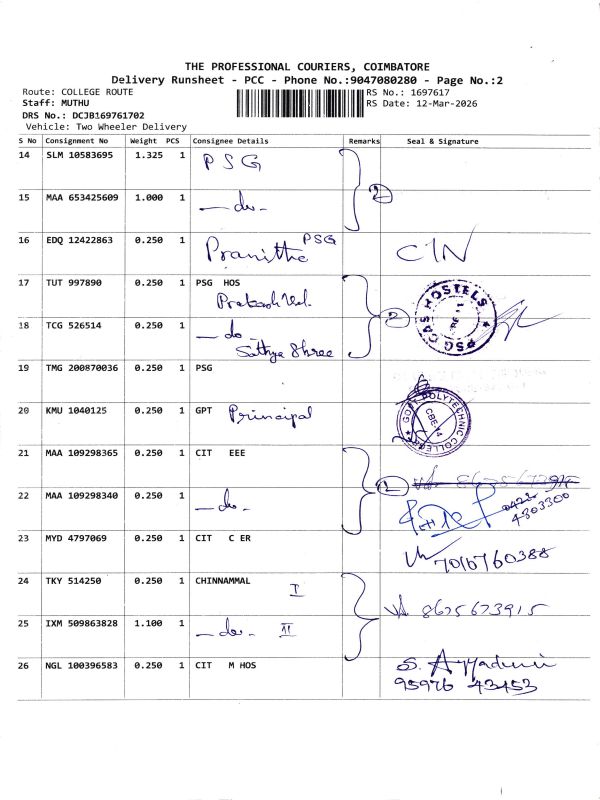 THE PROFESSIONAL COURIERS, COIMBATORE
Delivery Runsheet - PCC - Phone No.:9047080280 - Page No.:2
Route: COLLEGE ROUTE
RS No.: 1697617
Staff: MUTHU
RS Date: 12-Mar-2026
DRS No.: DCJB169761702
Vehicle: Two Wheeler Delivery
S No Consignment No Weight PCS Consignee Details Remarks Seal & Signature
14 SLM 10583695 1.325 1 PSG
15 MAA 653425609 1.000 1 — do - 2
16 EDQ 12422863 0.250 1 Pranitha PSG CIN
17 TUT 997890 0.250 1 PSG HOS
PSG CAS HOSTELS
18 TCG 526514 0.250 1 — do - 2
Sathya Shree
19 TMG 200870036 0.250 1 PSG
20 KMU 1040125 0.250 1 GPT Principal
GOVT POLYTECHNIC COLLEGE
CBE-14
21 MAA 109298365 0.250 1 CIT EEE
22 MAA 109298340 0.250 1 — do -
0422
4303300
23 MYD 4797069 0.250 1 CIT C ER
7016760388
24 TKY 514250 0.250 1 CHINNAMMAL
I
8675673915
25 IXM 509863828 1.100 1 — do - II
26 NGL 100396583 0.250 1 CIT M HOS
95976 43453